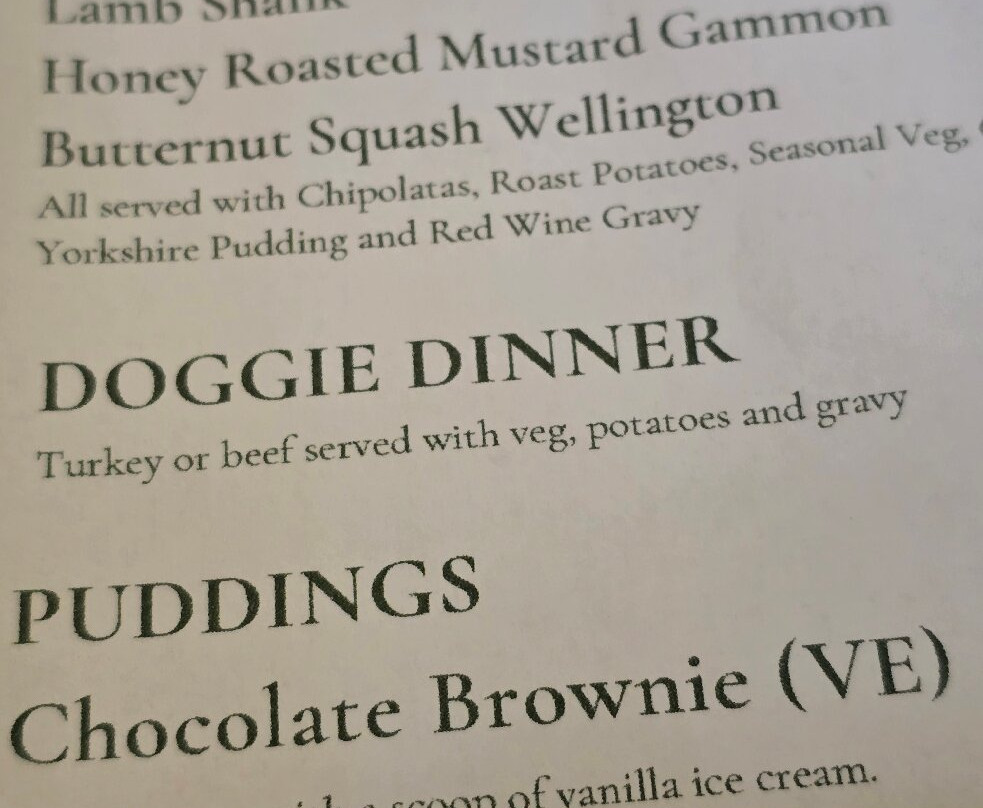 Lamb Shank
Honey Roasted Mustard Gammon
Butternut Squash Wellington
All served with Chipolatas, Roast Potatoes, Seasonal Veg,
Yorkshire Pudding and Red Wine Gravy
DOGGIE DINNER
Turkey or beef served with veg, potatoes and gravy
PUDDINGS
Chocolate Brownie (VE)
scoop of vanilla ice cream.